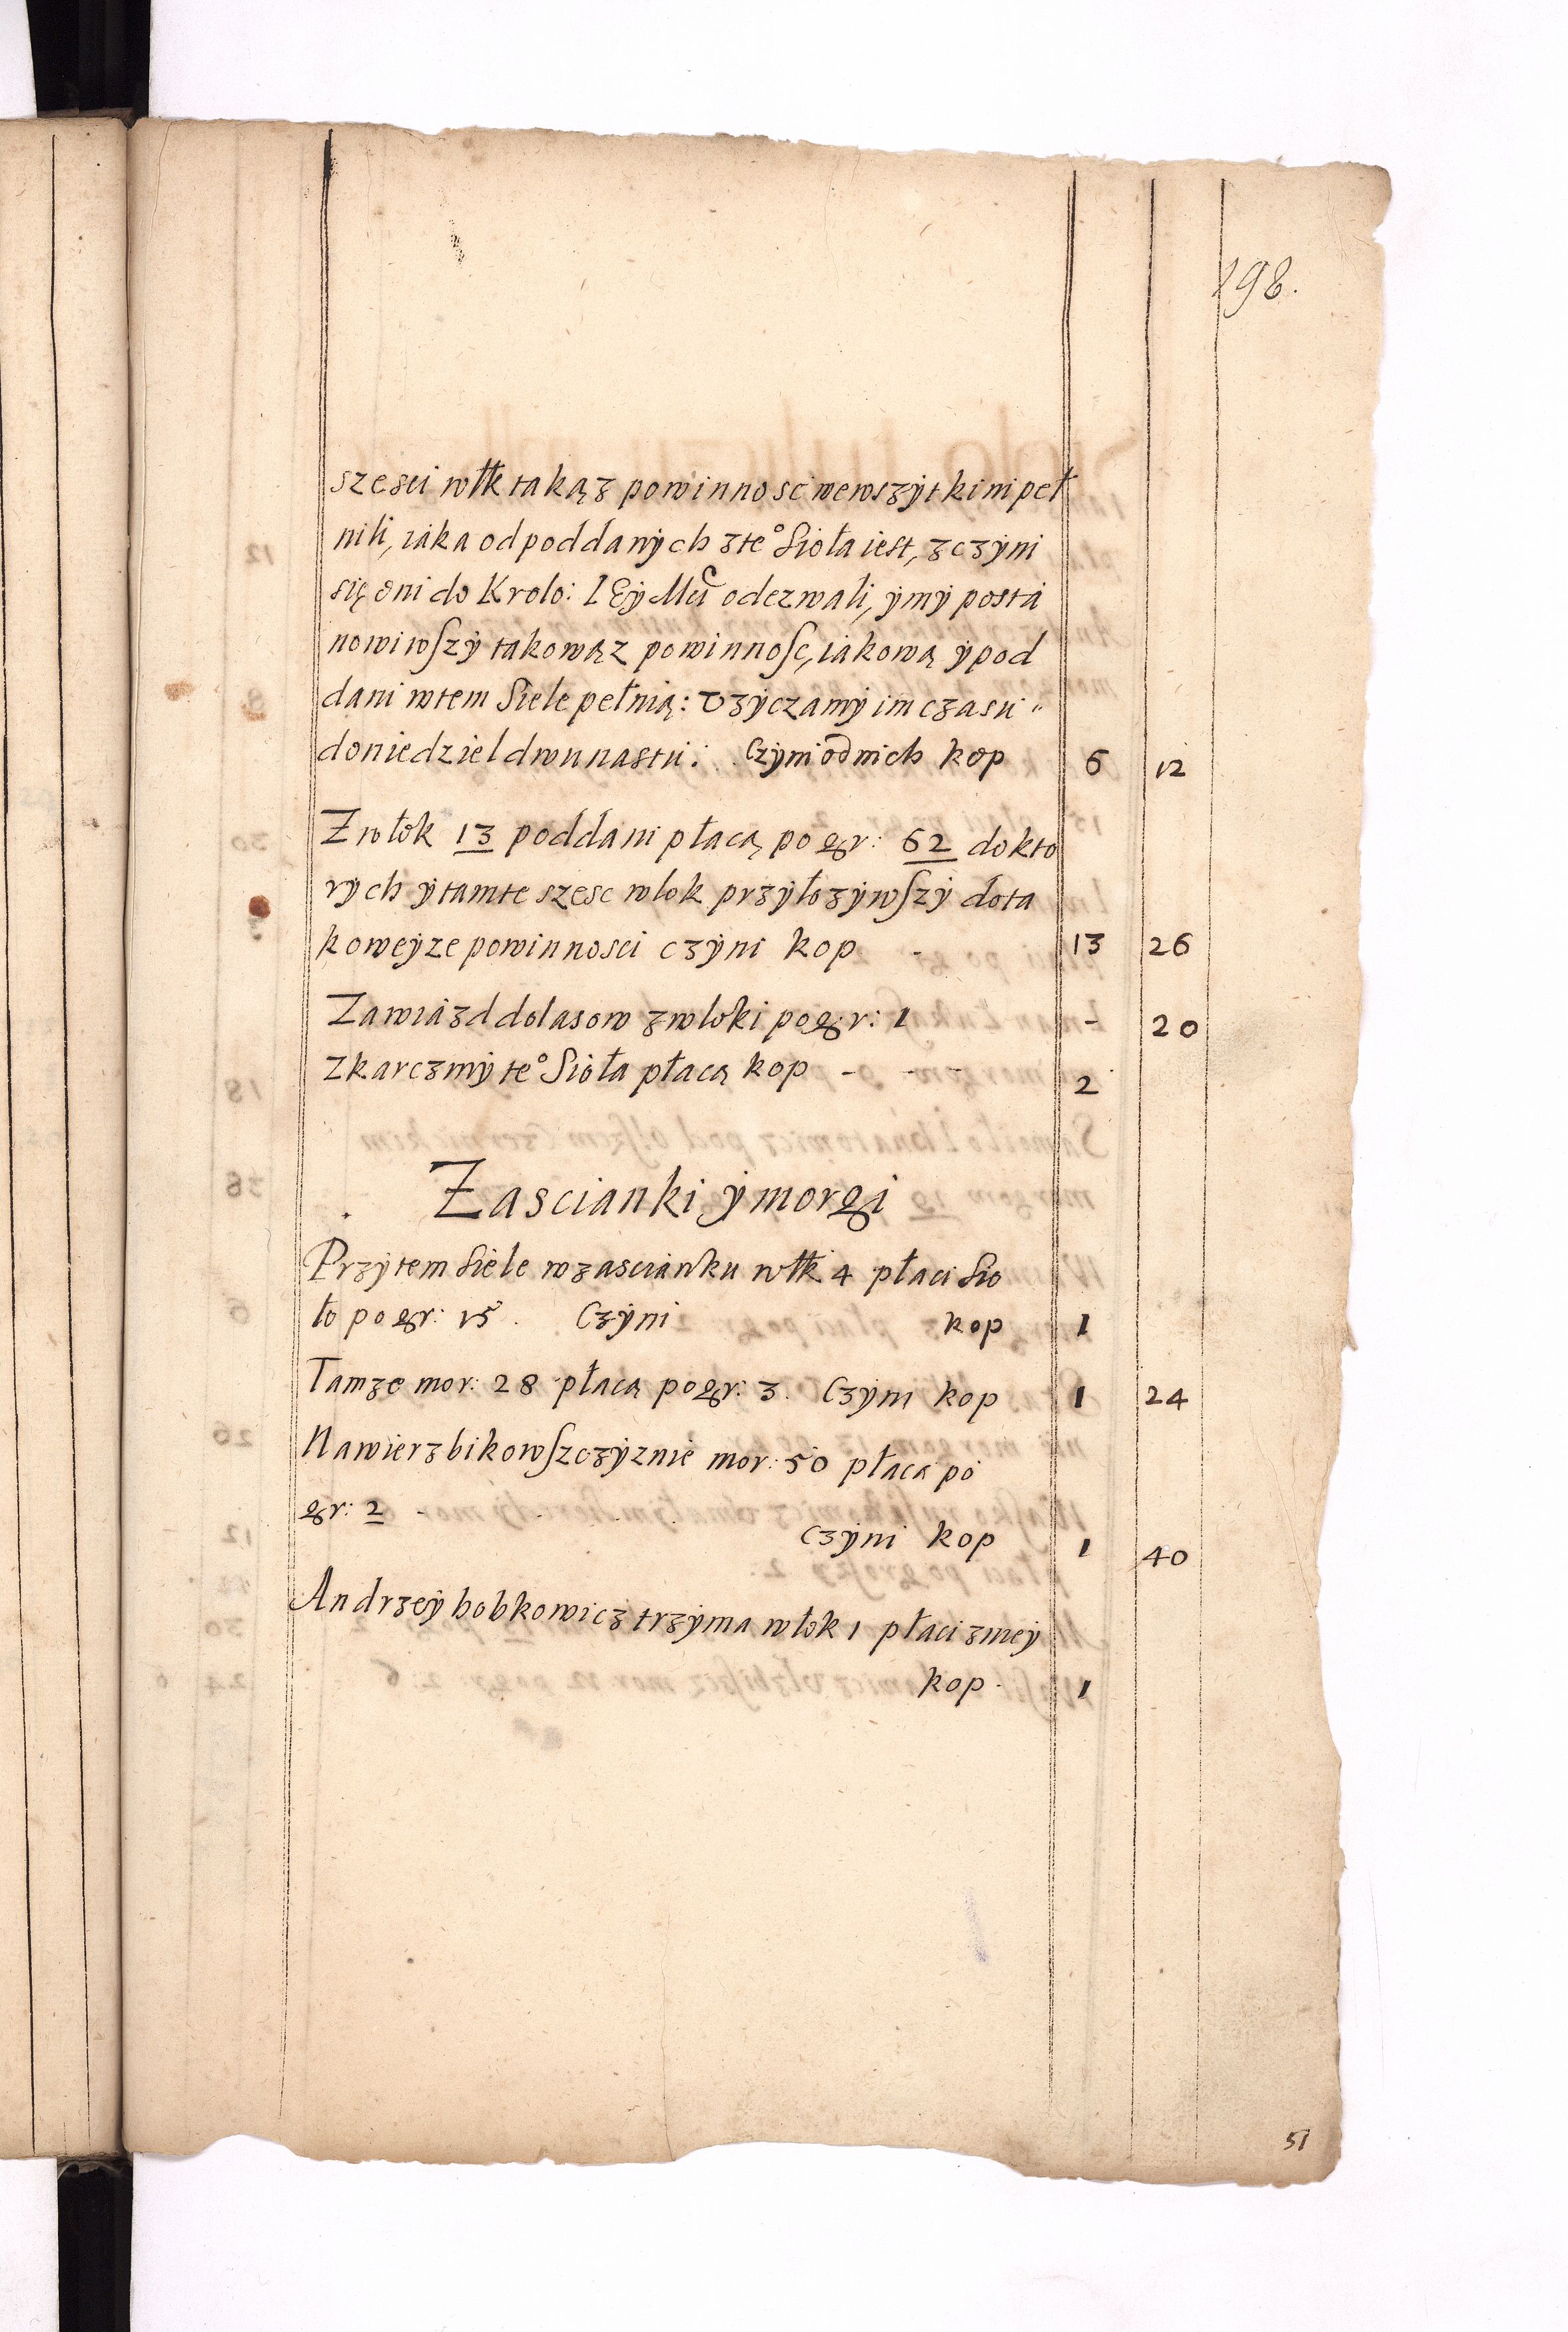 198.
szesci włk takąz powinnosc we wszytkim peł
nili, iaka od poddanych z te° Sioła iest, z czym
się oni do Krolo: IEy Mci odezwali, y my posta
nowiwszy takowąz powinnosc, iakową y pod
dani w tem Siele pełnią: Vzyczamy im czasu
do niedziel dwunastu: Czyni od nich kop 6 12
Z włok 13 poddani płacą po gr: 62 do kto
rych y tamte szesc wlok przyłozywszy do ta
koweyze powinnosci czyni kop - 13 26
Za wiazd do lasow z wloki po gr: 1 - 20
z karczmy te° Sioła płacą kop - - - 2
Zascianki y morgi
Przy tem Siele w zascianku włk 4 płaci Sio
ło po gr: 15. Czyni kop 1
Tamze mor: 28 płacą po gr: 3. Czyni kop 1 24
Na wierzbikowszczyznie mor: 50 płaca po
gr: 2 - czyni kop 1 40
Andrzey bobkowicz trzyma włok 1 płaci zniey
kop. 1
51